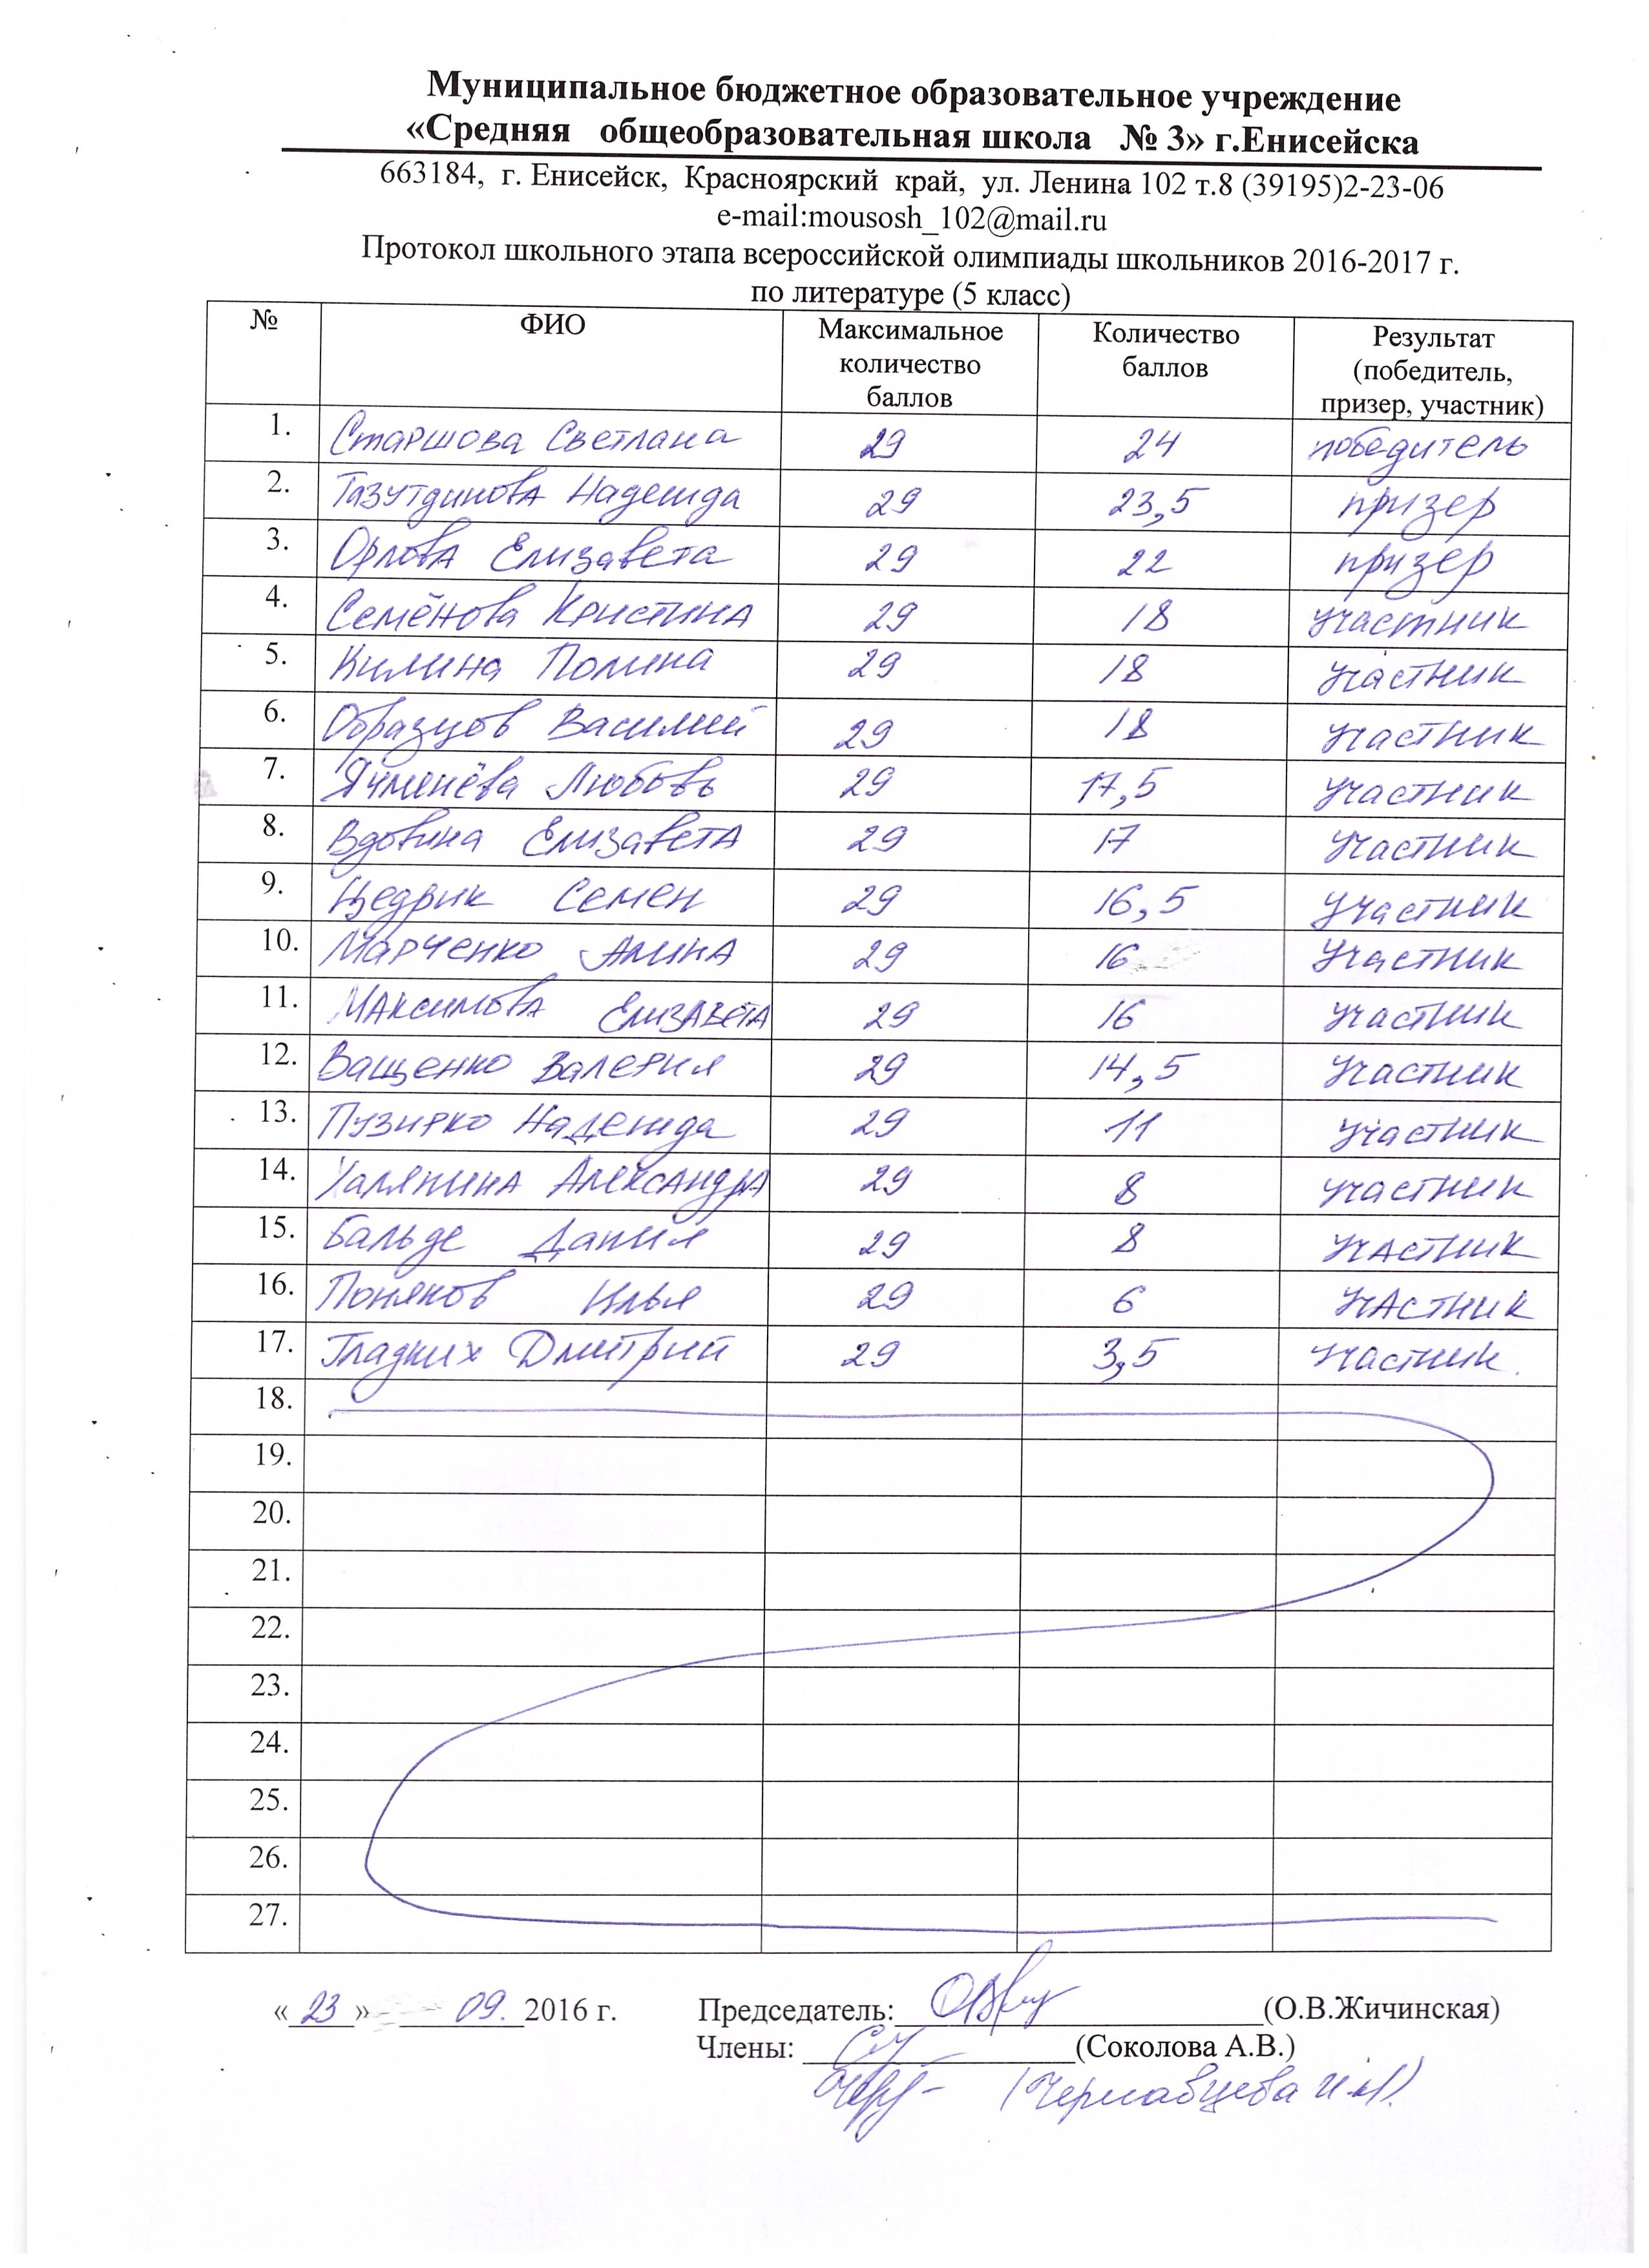 Муниципальное бюджетное образовательное учреждение
«Средняя общеобразовательная школа № 3» г.Енисейска
663184, г. Енисейск, Красноярский край, ул. Ленина 102 т.8 (39195)2-23-06
e-mail:mousosh_102@mail.ru
Протокол школьного этапа всероссийской олимпиады школьников 2016-2017 г.
по литературе (5 класс)
№ ФИО Максимальное количество баллов Количество баллов Результат (победитель, призер, участник)
1. Старшова Светлана 29 24 победитель
2. Тазутдинова Надежда 29 23,5 призер
3. Орлова Елизавета 29 22 призер
4. Семёнова Кристина 29 18 участник
5. Килина Полина 29 18 участник
6. Образцов Василий 29 18 участник
7. Ячменёва Любовь 29 17,5 участник
8. Вдовина Елизавета 29 17 участник
9. Цедрик Семен 29 16,5 участник
10. Марченко Алина 29 16 участник
11. Максимова Елизавета 29 16 участник
12. Ващенко Валерия 29 14,5 участник
13. Пузирко Надежда 29 11 участник
14. Халяпина Александра 29 8 участник
15. Бальде Данил 29 8 участник
16. Поняков Илья 29 6 участник
17. Гладких Дмитрий 29 3,5 участник.
18.
19.
20.
21.
22.
23.
24.
25.
26.
27.
«23» 09. 2016 г. Председатель: (О.В.Жичинская)
Члены: (Соколова А.В.)
(Чермавцева И.М.)